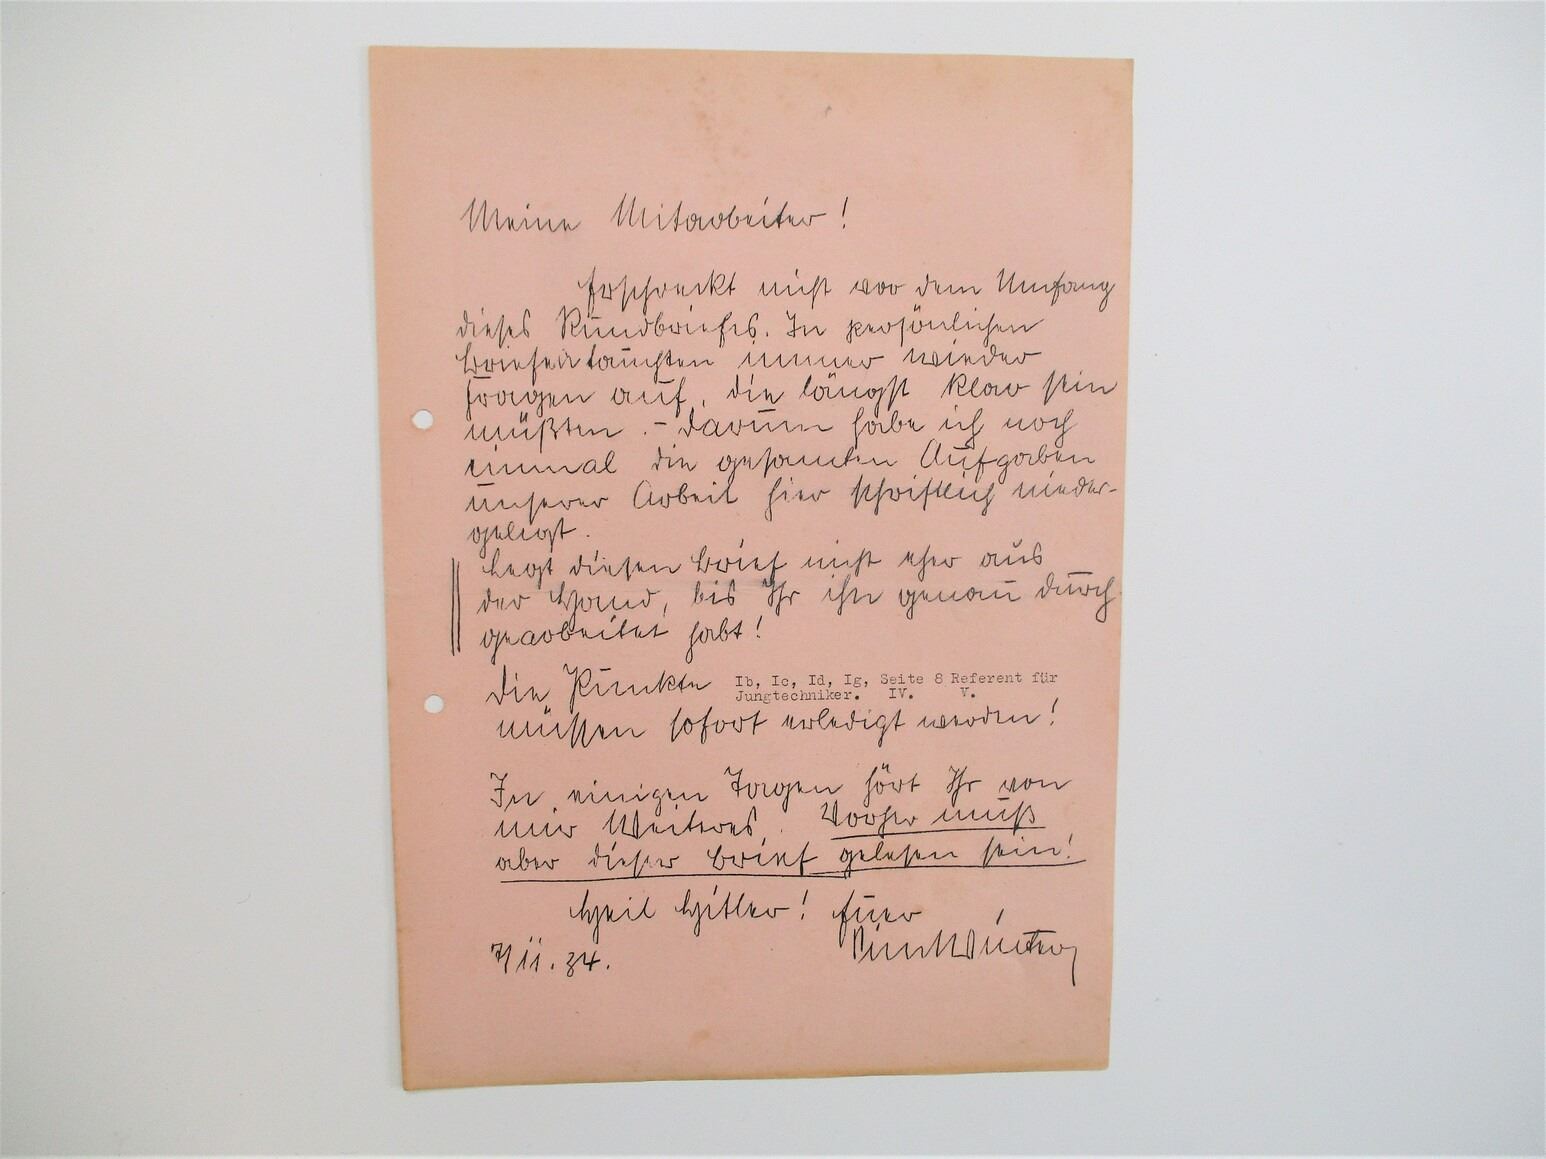 Meine Mitarbeiter!
Erschreckt nicht vor dem Umfang
dieses Rundbriefes. In persönlichen
Briefen tauchten immer wieder
Fragen auf, die längst klar sein
müßten. – Darum habe ich noch
einmal die gesamten Aufgaben
unserer Arbeit hier schriftlich nieder-
gelegt.
Legt diesen Brief nicht eher aus
der Hand, bis Ihr ihn genau durch
gearbeitet habt!
Die Punkte Ib, Ic, Id, Ig, Seite 8 Referent für
Jungtechniker. IV. V.
müssen sofort erledigt werden!
In einigen Tagen hört Ihr von
mir Weiteres. Vorher muß
aber dieser Brief gelesen sein!
Heil Hitler! Euer
7/11.34.